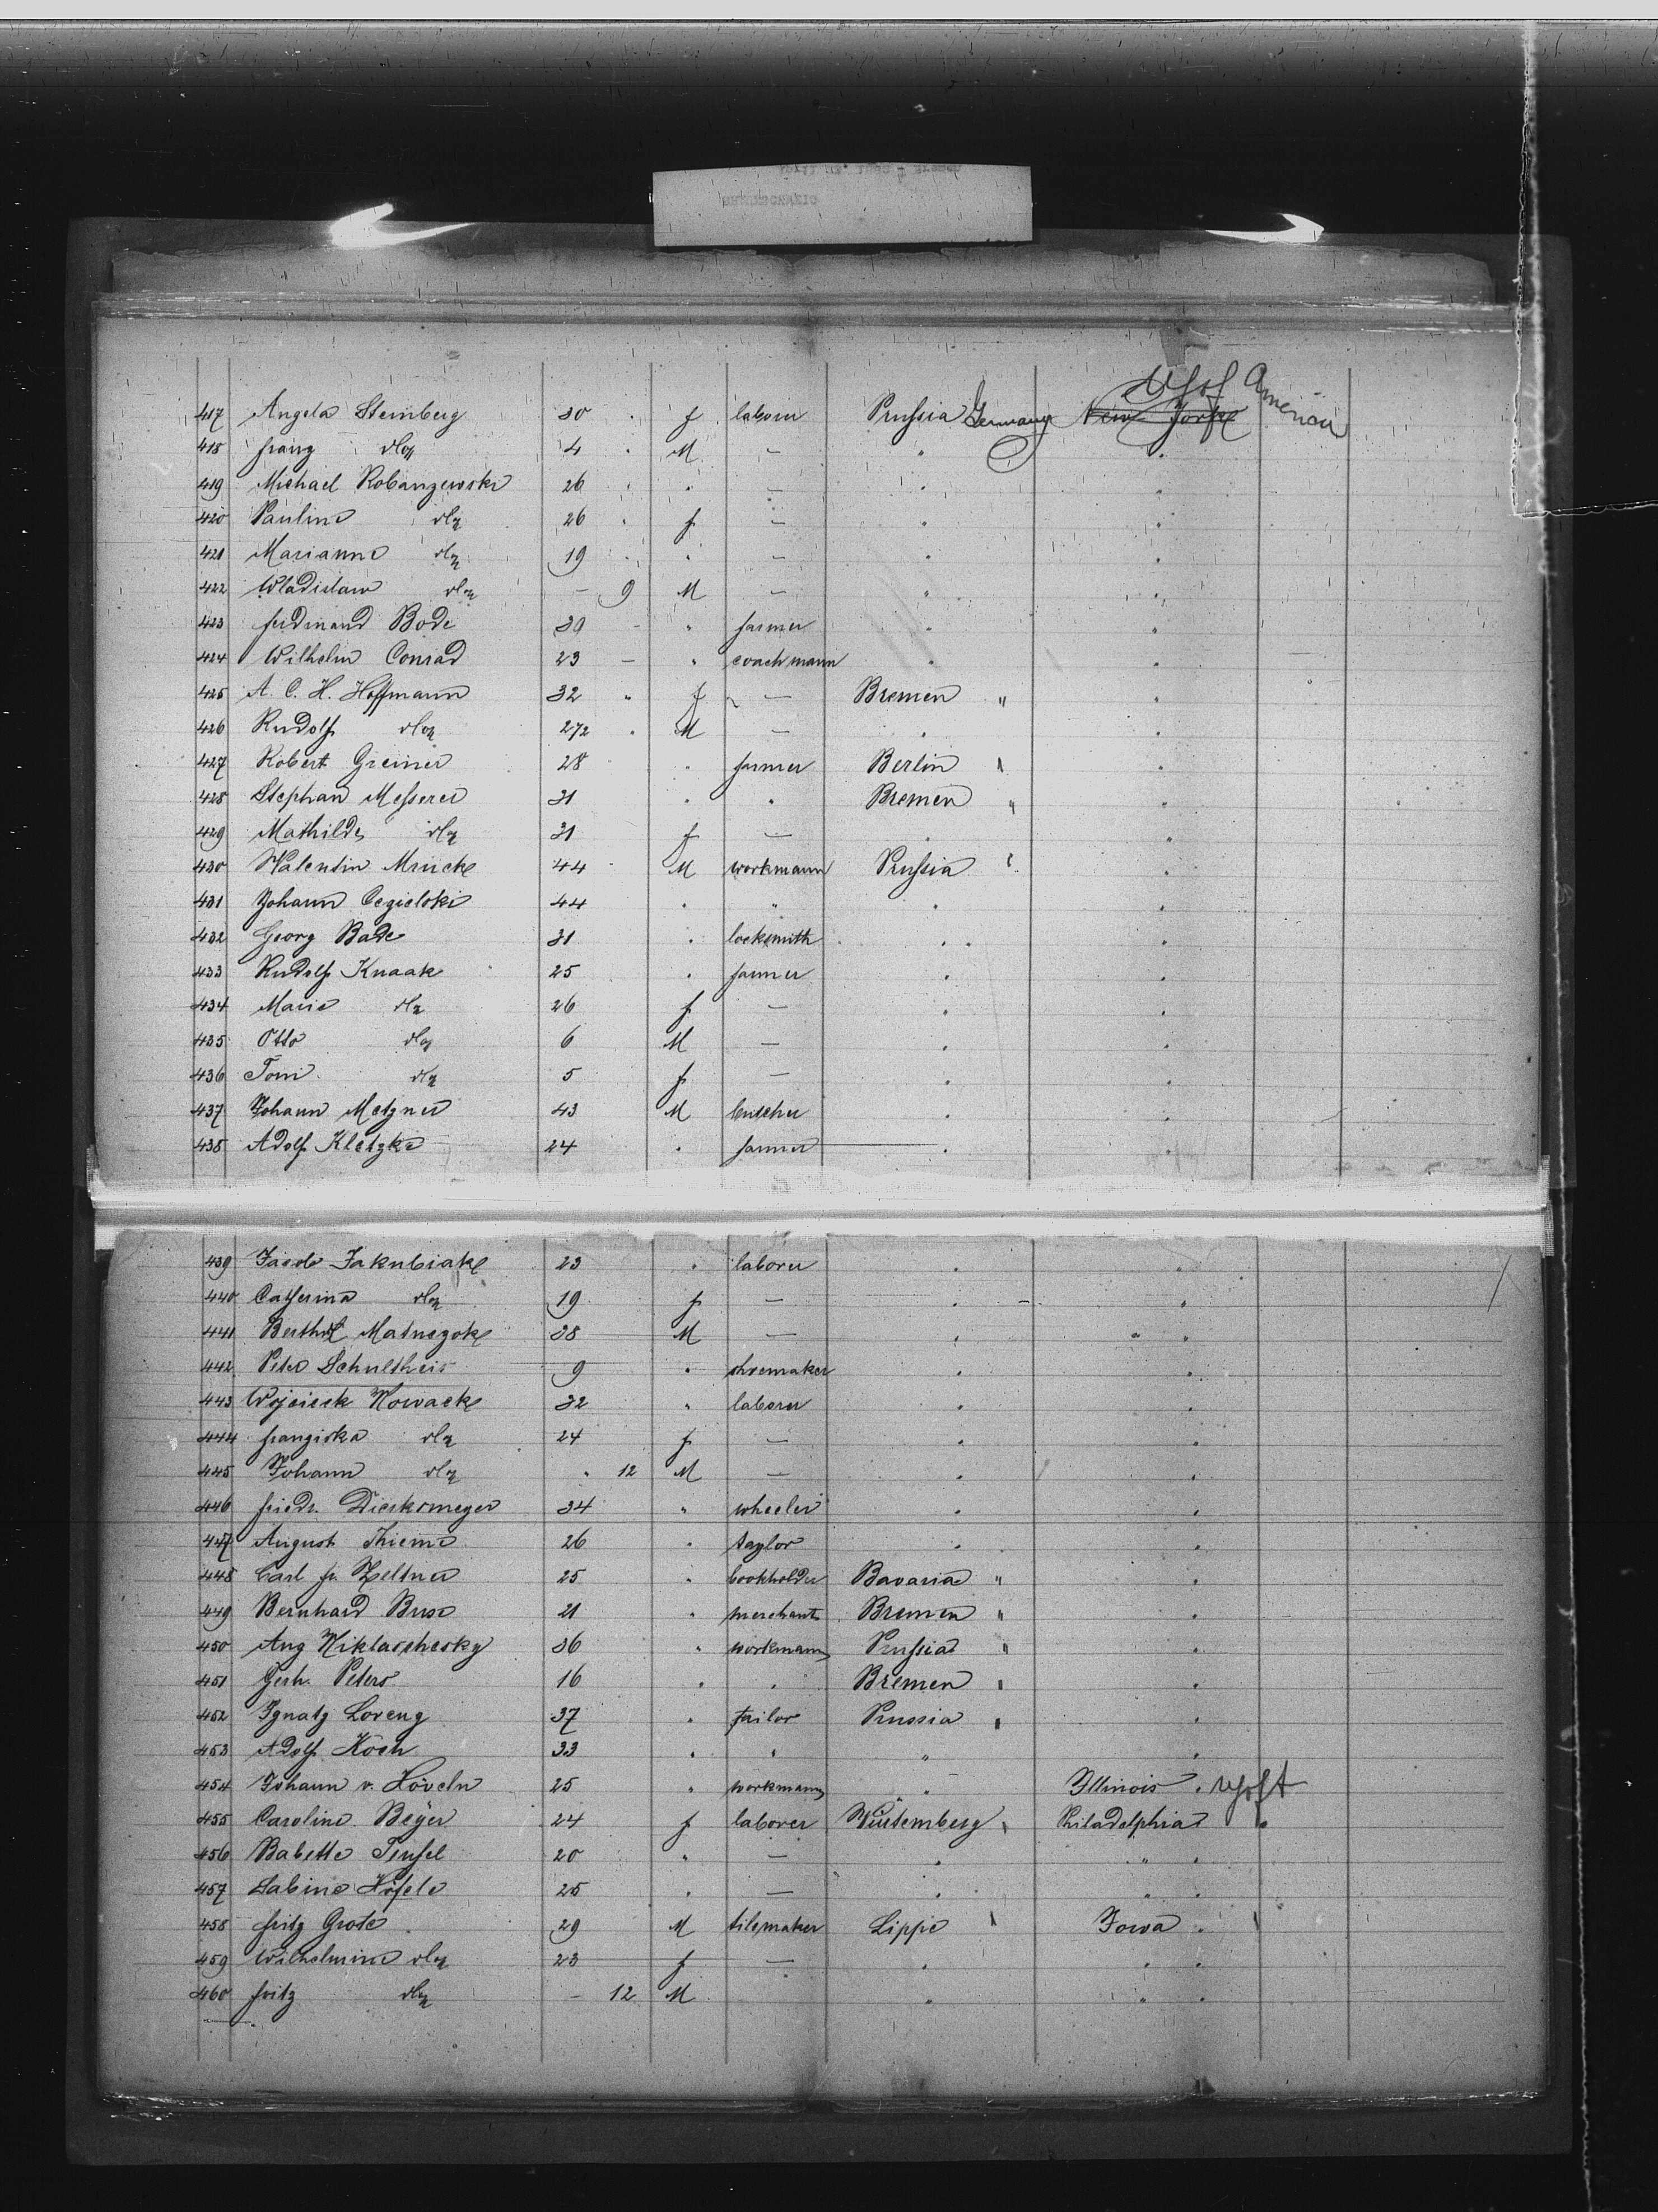 U S of America
417 Angela Steinberg 30 f laborer Prussia Germany New York
418 franz dto 4 M — " "
419 Michael Robanzewski 26 " — " "
420 Pauline dto 26 f — " "
421 Marianne dto 19 " — " "
422 Wladislaw dto – 9 M — " "
423 ferdinand Bode 39 – " farmer " "
424 Wilhelm Conrad 23 – " coachmann " "
425 A. C. H. Hoffmann 32 " f — Bremen " "
426 Rudolf dto 2 1/2 M — " "
427 Robert Greiner 28 " farmer Berlin " "
428 Stephan Messerer 31 " " Bremen " "
429 Mathilde dto 31 f — " "
430 Valentin Mrucke 44 M workmann Prussia " "
431 Johann Cegielski 44 " " " "
432 Georg Bade 31 " locksmith " "
433 Rudolf Knaak 25 " farmer " "
434 Marie dto 26 f — " "
435 Otto dto 6 M — " "
436 Toni dto 5 f — " "
437 Johann Metzner 43 M butcher " "
438 Adolf Kletzke 24 " farmer " "
439 Jacob Jakubiak 23 " laborer " "
440 Catherina dto 19 f — " "
441 Berthold Matuszok 38 M — " "
442 Peter Schultheis 9 " shoemaker " "
443 Wojcieck Nowack 32 " laborer " "
444 franziska dto 24 f — " "
445 Johann dto " 12 M — " "
446 friedr. Dierksmeyer 34 " wheeler " "
447 August Thieme 26 " taylor " "
448 Carl fr. Zeltner 25 " bookholder Bavaria " "
449 Bernhard Buse 21 " merchant Bremen " "
450 Aug Niklaschesky 36 " workmann Prussia " "
451 Gerh. Peters 16 " " Bremen " "
452 Ignatz Lorenz 37 " tailor Prussia " "
453 Adolf Koch 33 " " " "
454 Johann v. Höveln 25 " workmann " Illinois . U S of A
455 Caroline Beÿer 24 f laborer Würtemberg " Philadelphia "
456 Babette Teufel 20 " — " " "
457 Sabine Höfele 25 " — " " "
458 fritz Grote 29 M tilemaker Lippe " Iowa . "
459 Wilhelmine dto 23 f — " " "
460 fritz dto – 12 M " " "